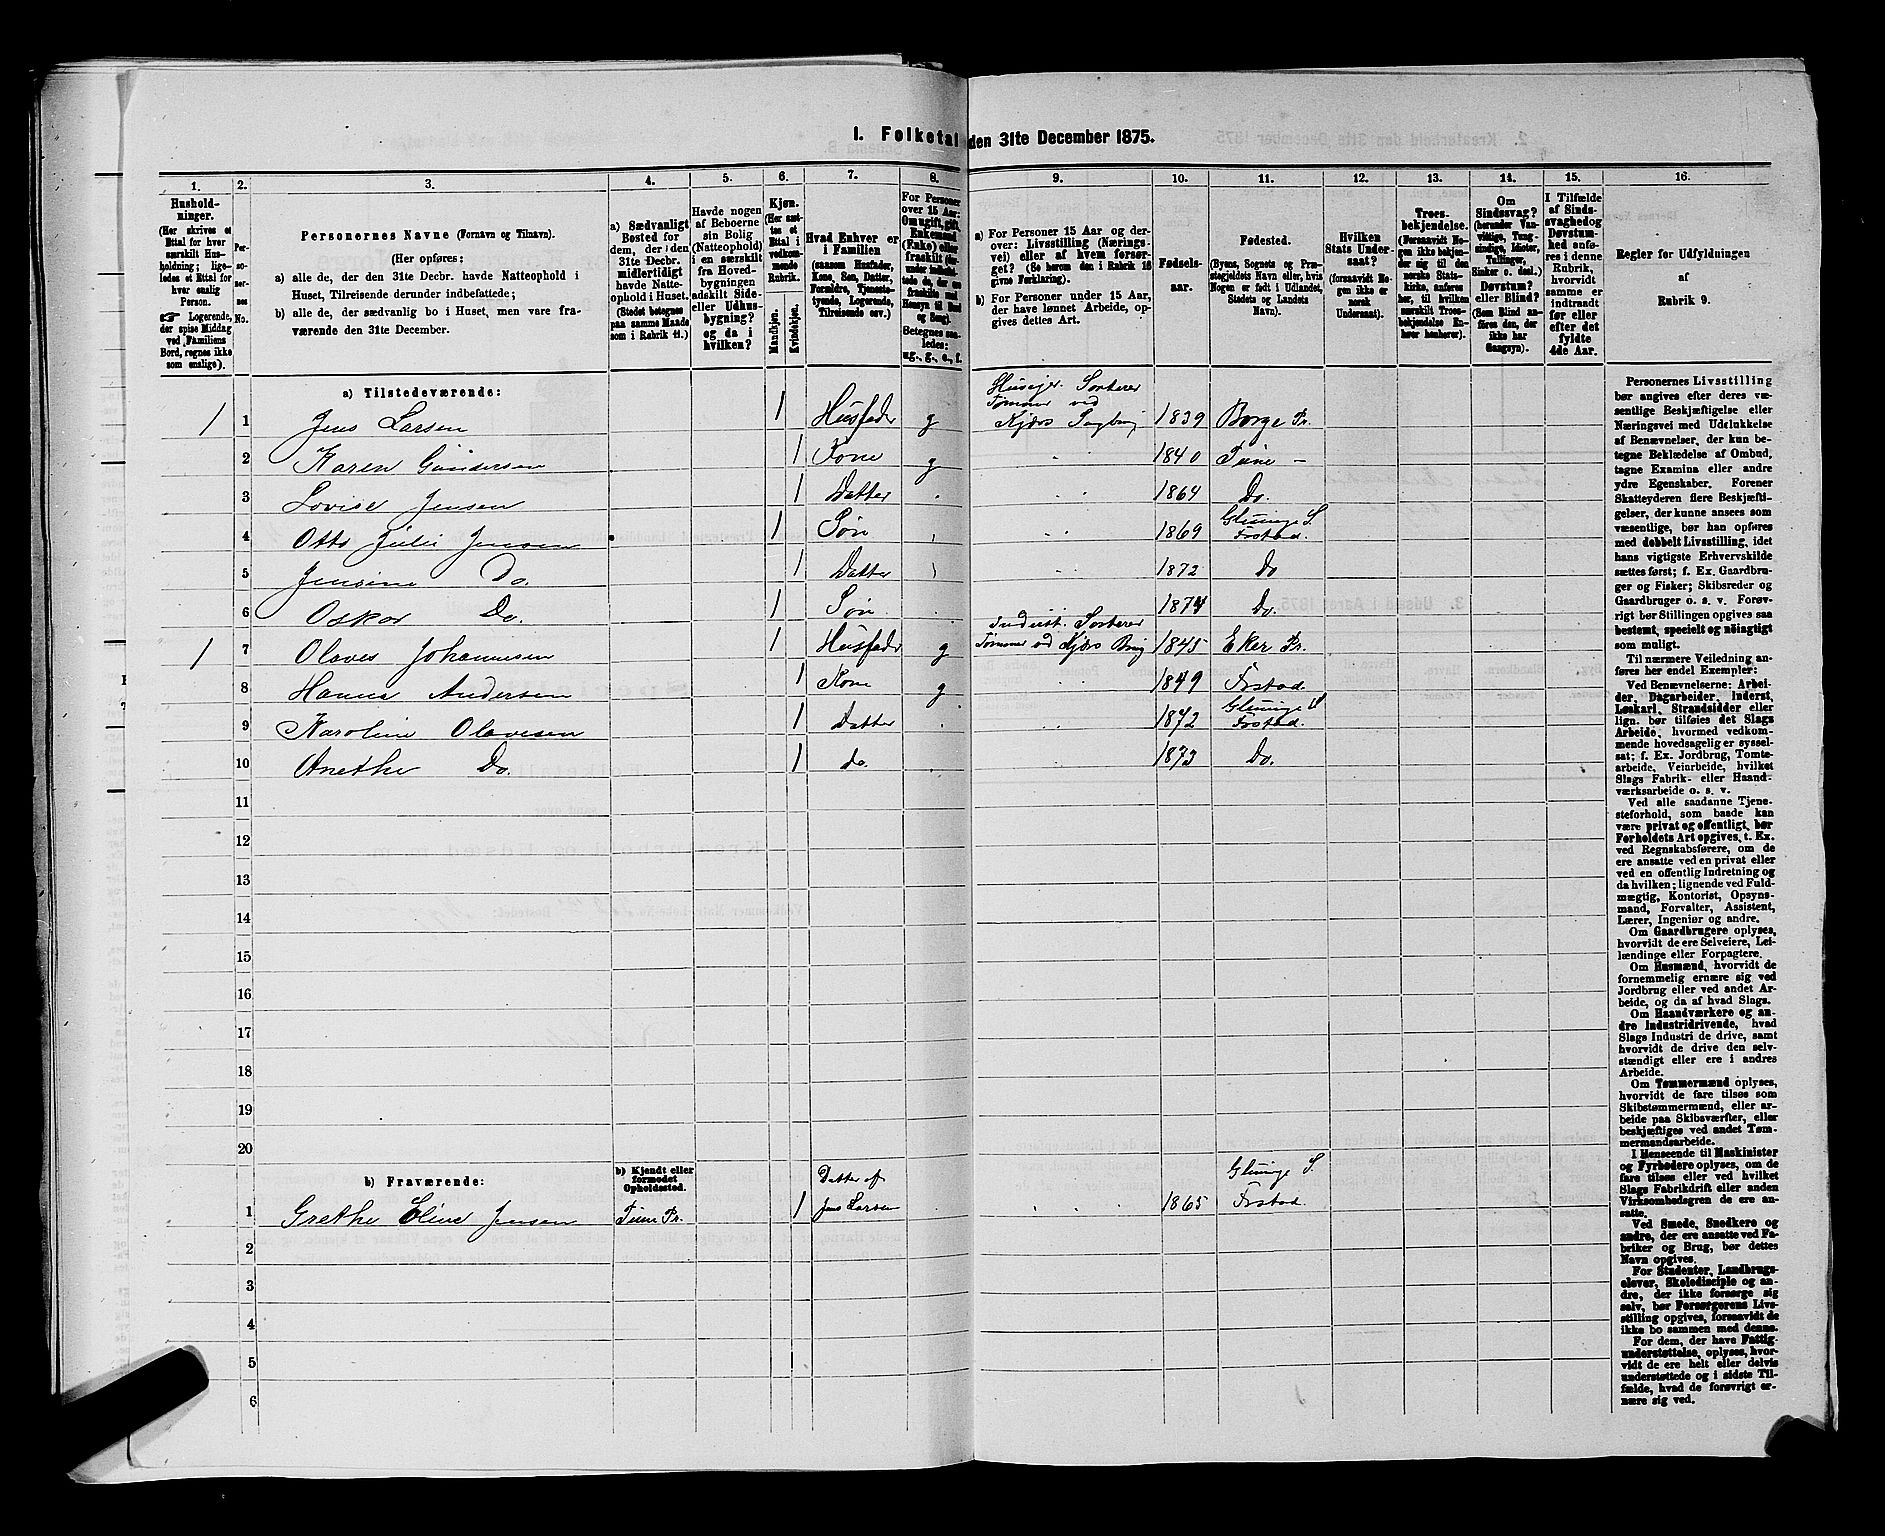 I. Folketal den 31te December 1875.
1. 2. 3. 4. 5. 6. 7. 8. 9. 10. 11. 12. 13. 14. 15. 16.
Hushold-
ninger.
(Her skrives et
Ettal for hver
særskilt Hus-
holdning; lige-
ledes et Ettal for
hver enslig
Person.
☞ Logerende,
der spise Middag
ved Familiens
Bord, regnes ikke
som enslige).
Per-
so-
ner-
nes
No.
Personernes Navne (Fornavn og Tilnavn).
(Her opføres:
a) alle de, der den 31te Decbr. havde Natteophold i
Huset, Tilreisende derunder indbefattede;
b) alle de, der sædvanlig bo i Huset, men vare fra-
værende den 31te December.
a) Sædvanligt
Bosted for
dem, der den
31te Decbr.
midlertidigt
havde Natte-
ophold i Huset.
(Stedet betegnes
paa samme Maade
som i Rubrik 11.)
Havde nogen
af Beboerne
sin Bolig
(Natteophold)
i en særskilt
fra Hoved-
bygningen
adskilt Side-
eller Udhus-
bygning?
og da i
hvilken?
Kjøn.
(Her sæt-
tes et
Ettal i
vedkom-
mende
Rubrik.
Mandkjøn.
Kvindekjøn.
Hvad Enhver er
i Familien
(saasom Husfader,
Kone, Søn, Datter,
Forældre, Tjeneste-
tyende, Logerende,
Tilreisende osv.)
For Personer
over 15 Aar:
Om ugift, gift,
Enkemand
(Enke) eller
fraskilt
Betegnes saa-
ledes:
ug., g., e., f.
a) For Personer 15 Aar og der-
over: Livsstilling (Nærings-
vei) eller af hvem forsør-
get? (Se herom den i Rubrik 16
givne Forklaring).
b) For Personer under 15 Aar,
der have lønnet Arbeide, op-
gives dettes Art.
Fødsels-
aar.
Fødested.
(Byens, Sognets og Præ-
stegjeldets Navn eller, hvis
Nogen er født i Udlandet,
Stedets og Landets
Navn).
Hvilken
Stats Under-
saat?
(forsaavidt No-
gen ikke er
norsk
Undersaat).
Troes-
bekjendelse.
(Forsaavidt No-
gen ikke bekjen-
der sig til den
norske Stats-
kirke, anføres
her, til hvilken
særskilt Troes-
bekjendelse En-
hver henhører).
Om
Sindssvag?
(herunder Van-
vittige, Tung-
sindige, Idioter,
Tullinger,
Sinker o. desl.)
Døvstum?
eller Blind?
(Som Blind an-
føres den, der
ikke har
Gangsyn).
I Tilfælde
af Sinds-
svaghed og
Døvstum-
hed anfø-
res i denne
Rubrik,
hvorvidt
samme er
indtraadt
før eller
efter det
fyldte
4de Aar.
Regler for Udfyldningen
af
Rubrik 9.
a) Tilstedeværende:
1 1 Jens Larsen 1 Husfader g Huseier. Sorterer Tømmer ved Kjærs Sagbrug 1839 Borge Pr.
2 Karen Gundersen 1 Kone g 1840 Tune –
3 Lovise Jensen 1 Datter 1864 Do.
4 Otto Julis Jensen 1 Søn 1869 Glemminge S. Frstad.
5 Jensine Do. 1 Datter 1872 Do
6 Oskar Do. 1 Søn 1874 Do.
1 7 Olaves Johannesen 1 Husfader g Inderst. Sorterer Tømmer ved Kjærs Brug 1845 Eker Pr.
8 Hanna Andersen 1 Kone g 1849 Frstad.
9 Karoline Olavesen 1 Datter 1872 Glemminge S Frstad.
10 Anethe Do. 1 do. 1873 Do.
11
12
13
14
15
16
17
18
19
20
b) Fraværende:
b) Kjendt eller
formodet
Opholdssted.
1 Grethe Eline Jensen Tune Pr. 1 Datter af Jens Larsen 1865 Glemminge S. Frstad.
2
3
4
5
6
Personernes Livsstilling
bør angives efter deres væ-
sentlige Beskjæftigelse eller
Næringsvei med Udelukkelse
af Benævnelser, der kun be-
tegne Beklædelse af Ombud,
tagne Examina eller andre
ydre Egenskaber. Forener
Skatteyderen flere Beskjæfti-
gelser, der kunne ansees som
væsentlige, bør han opføres
med dobbelt Livsstilling, idet
hans vigtigste Erhvervskilde
sættes først; f. Ex. Gaardbru-
ger og Fisker; Skibsreder og
Gaardbruger o. s. v. Forøv-
rigt bør Stillingen opgives saa
bestemt, specielt og nöiagtigt
som muligt.
Til nærmere Veiledning an-
føres her endel Exempler:
Ved Benævnelserne: Arbei-
der, Dagarbeider, Inderst,
Løskarl, Strandsidder eller
lign. bør tilføies det Slags
Arbeide, hvormed vedkom-
mende hovedsagelig er syssel-
sat; f. Ex. Jordbrug, Tomte-
arbeide, Veiarbeide, hvilket
Slags Fabrik- eller Haand-
værksarbeide o. s. v.
Ved alle saadanne Tjene-
steforhold, som baade kan
være privat og offentligt, bør
Forholdets Art opgives, t. Ex.
ved Regnskabsførere, om de
ere ansatte ved en privat eller
ved en offentlig Indretning og
da hvilken; lignende ved Fuld-
mægtig, Kontorist, Opsyns-
mand, Forvalter, Assistent,
Lærer, Ingeniør og andre.
Om Gaardbrugere oplyses,
hvorvidt de ere Selveiere, Lei-
lændinge eller Forpagtere.
Om Husmænd, hvorvidt de
fornemmelig ernære sig ved
Jordbrug eller ved andet Ar-
beide, og da af hvad Slags.
Om Haandværkere og an-
dre Industridrivende, hvad
Slags Industri de drive, samt
hvorvidt de drive den selv-
stændigt eller ere i andres
Arbeide.
Om Tømmermænd oplyses,
hvorvidt de fare tilsøs som
Skibstømmermænd, eller ar-
beide paa Skibsværfter, eller
beskjæftiges ved andet Tøm-
mermandsarbeide.
I Henseende til Maskinister
og Fyrbødere oplyses, om de
fare tilsøs eller ved hvilket
Slags Fabrikdrift eller anden
Virksomhedsgren de ere an-
satte.
Ved Smede, Snedkere og
andre, der ere ansatte ved Fa-
briker og Brug, bør dettes
Navn opgives.
For Studenter, Landbrugs-
elever, Skoledisciple og an-
dre, der ikke forsørge sig
selv, bør Forsørgerens Livs-
stilling opgives, forsaavidt de
ikke bo sammen med denne.
For dem, der have Fattig-
understøttelse, oplyses, hvor-
vidt de ere helt eller delvis
understøttede og i sidste Til-
fælde, hvad de forøvrigt er-
nære sig ved.